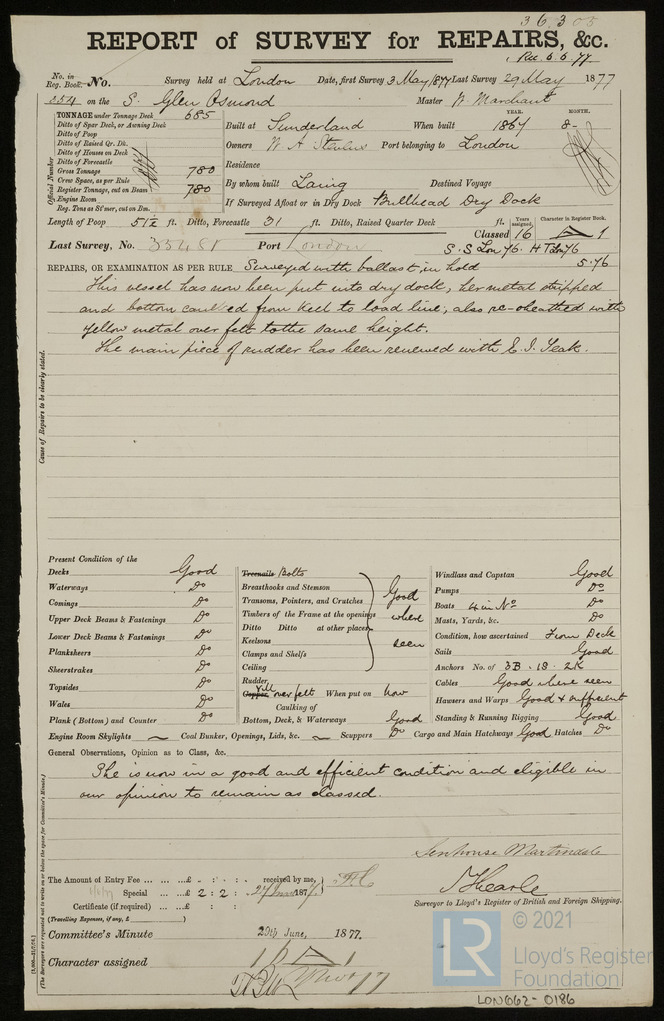 36305
REPORT of SURVEY for REPAIRS, &c.
Rec. 6.6.77
No. in Reg. Book. No. Survey held at London Date, first Survey 3 May 1877 Last Survey 29 May 1877
354 on the S. Glen Osmond Master W. Marchant
TONNAGE under Tonnage Deck 685
Ditto of Spar Deck, or Awning Deck
Ditto of Poop
Ditto of Raised Qr. Dk.
Ditto of Houses on Deck
Ditto of Forecastle
Gross Tonnage 780
Crew Space, as per Rule
Register Tonnage, cut on Beam 780
Engine Room
Reg. Tons as St'mer, cut on Bm.
Official Number
YEAR. MONTH.
Built at Sunderland When built 1867 8-
Owners W A Port belonging to London
Residence
By whom built Laing Destined Voyage
If Surveyed Afloat or in Dry Dock Bullhead Dry Dock
Length of Poop 51½ ft. Ditto, Forecastle 31 ft. Ditto, Raised Quarter Deck ft.
Years assigned. Character in Register Book.
Classed 16 A 1
Last Survey, No. 33481 Port London
S.S Lon 76. H T Lon 76
5.76
REPAIRS, OR EXAMINATION AS PER RULE Surveyed with ballast in hold
This vessel has now been put into dry dock, her metal stripped
and bottom caulked from keel to load line; also re-sheathed with
yellow metal over felt to the same height.
The main piece of rudder has been renewed with E. I. Teak.
Cause of Repairs to be clearly stated.
Present Condition of the
Decks Good
Waterways Do
Comings Do
Upper Deck Beams & Fastenings Do
Lower Deck Beams & Fastenings Do
Planksheers Do
Sheerstrakes Do
Topsides Do
Wales Do
Plank (Bottom) and Counter Do
Treenails Bolts
Breasthooks and Stemson
Transoms, Pointers, and Crutches
Timbers of the Frame at the openings
Ditto Ditto at other places
Keelsons
Clamps and Shelfs
Ceiling
Good where seen
Rudder
Copper Yell over felt When put on Now
Caulking of
Bottom, Deck, & Waterways Good
Windlass and Capstan Good
Pumps Do
Boats 4 in No Do
Masts, Yards, &c. Do
Condition, how ascertained From Deck
Sails Good
Anchors No. of 3B. 1S. 2K
Cables Good where seen
Hawsers and Warps Good & sufficient
Standing & Running Rigging Good
Engine Room Skylights Coal Bunker, Openings, Lids, &c. Scuppers Do Cargo and Main Hatchways Good Hatches Do
General Observations, Opinion as to Class, &c.
She is now in a good and efficient condition and eligible in
our opinion to remain as classed.
Senhouse Martindale
The Amount of Entry Fee ... ... ...£ : : received by me,
Special ... ...£ 2 : 2 : 187
Certificate (if required) ... ...£ : :
(Travelling Expenses, if any, £ )
Surveyor to Lloyd's Register of British and Foreign Shipping.
Committee's Minute 29th June, 1877.
Character assigned 16 A 1
LR
© 2021
Lloyd's Register
Foundation
LON662-0186